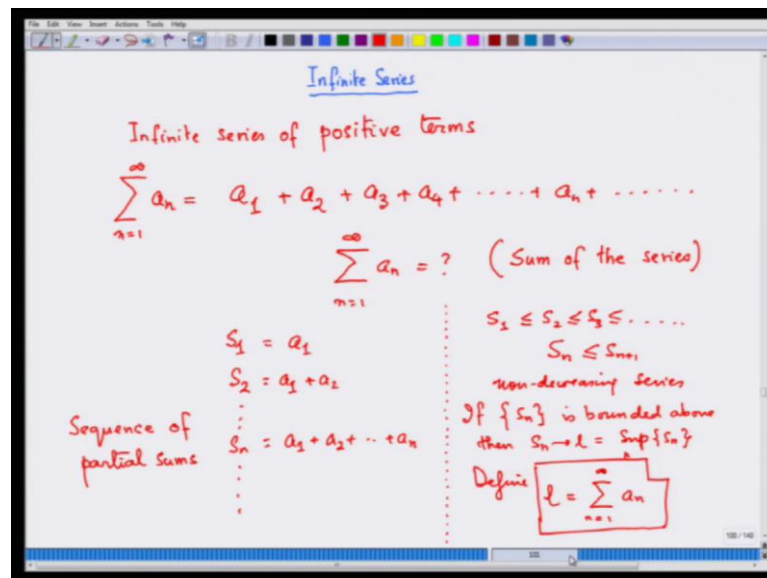 File Edit View Insert Actions Tools Help
Infinite Series
Infinite series of positive terms
∞
∑ aₙ = a₁ + a₂ + a₃ + a₄ + ····· + aₙ + ······
n=1
∞
∑ aₙ = ? (Sum of the series)
n=1
S₁ = a₁
S₂ = a₁ + a₂
Sequence of
partial sums
Sₙ = a₁ + a₂ + ·· + aₙ
S₁ ≤ S₂ ≤ S₃ ≤ ······
Sₙ ≤ Sₙ₊₁
non-decreasing series
If {Sₙ} is bounded above
then Sₙ → l = Sup{Sₙ}
n
Define
∞
l = ∑ aₙ
n=1
100 / 140
101